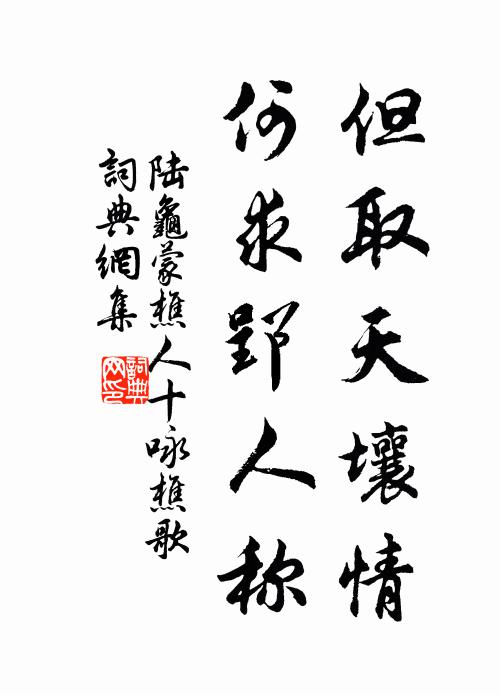 但取天壤情
何求郢人称
陆龜蒙樵人十咏樵歌
詞典網集
詞典網印